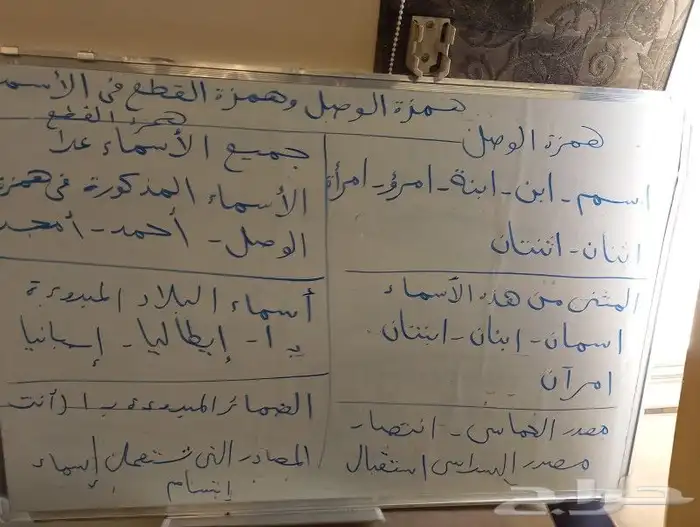 همزة الوصل وهمزة القطع في الأسم
همزة الوصل
اسم - ابن - ابنة - امرؤ - امرأة
اثنان - اثنتان
المثنى من هذه الأسماء
اسمان - ابنان - ابنتان
امرآن
مصدر الخماسي - انتصار
مصدر السداسي استقبال
همزة القطع
جميع الأسماء عدا
الأسماء المذكورة في همزة
الوصل - أحمد - أمجد
أسماء البلاد المبدوءة
بـ ا - إيطاليا - إسبانيا
الضمائر المبدوءة بـ ا (أنت
المصادر التي تشتعمل إسماء
إبتسام
حراج